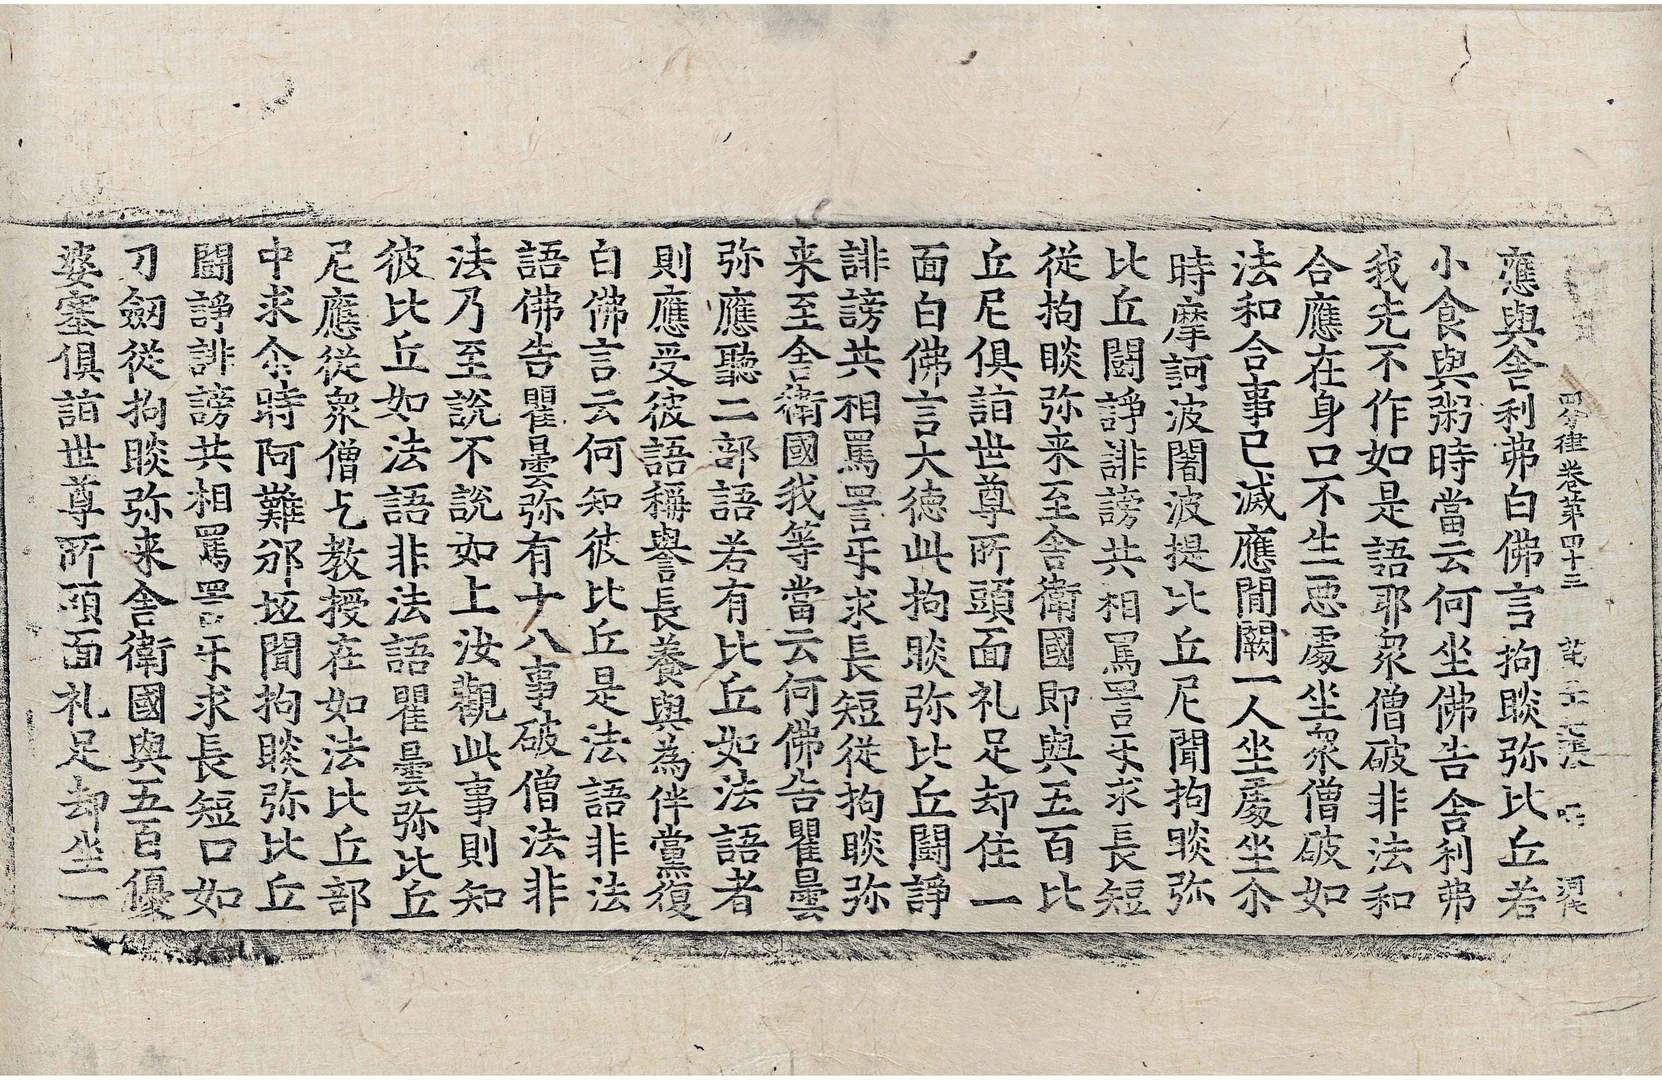 四分律卷第四十三
應與舍利弗白佛言拘睒弥比丘若
小食與粥時當云何坐佛告舍利弗
我先不作如是語耶衆僧破非法和
合應在身口不生惡處坐衆僧破如
法和合事已滅應間闕一人坐處坐尒
時摩訶波闍波提比丘尼聞拘睒弥
比丘鬪諍誹謗共相罵詈㸦求長短
從拘睒弥来至舍衛國即與五百比
丘尼俱詣世尊所頭面礼足却住一
面白佛言大德此拘睒弥比丘鬪諍
誹謗共相罵詈㸦求長短從拘睒弥
来至舍衛國我等當云何佛告瞿曇
弥應聽二部語若有比丘如法語者
則應受彼語稱譽長養與為伴黨復
白佛言云何知彼比丘是法語非法
語佛告瞿曇弥有十八事破僧法非
法乃至說不說如上汝觀此事則知
彼比丘如法語非法語瞿曇弥比丘
尼應從衆僧乞教授在如法比丘部
中求尒時阿難邠坻聞拘睒弥比丘
鬪諍誹謗共相罵詈㸦求長短口如
刀劒從拘睒弥来舍衛國與五百優
婆塞俱詣世尊所頭面礼足却坐一